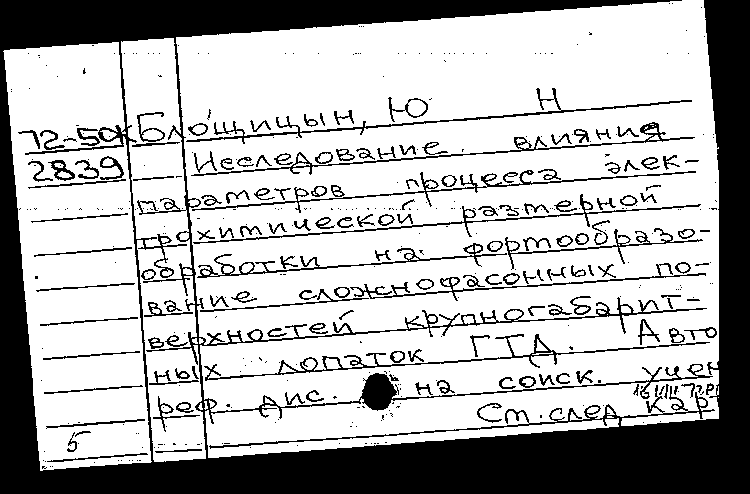 72-50к Блощицын, Ю Н
2839 Исследование влияния
параметров процесса элек-
трохимической размерной
обработки на формообразо-
вание сложнофасонных по-
верхностей крупногабарит-
ных лопаток ГТД. Авто
реф. дис. на соиск. учен
См. след. кар
5